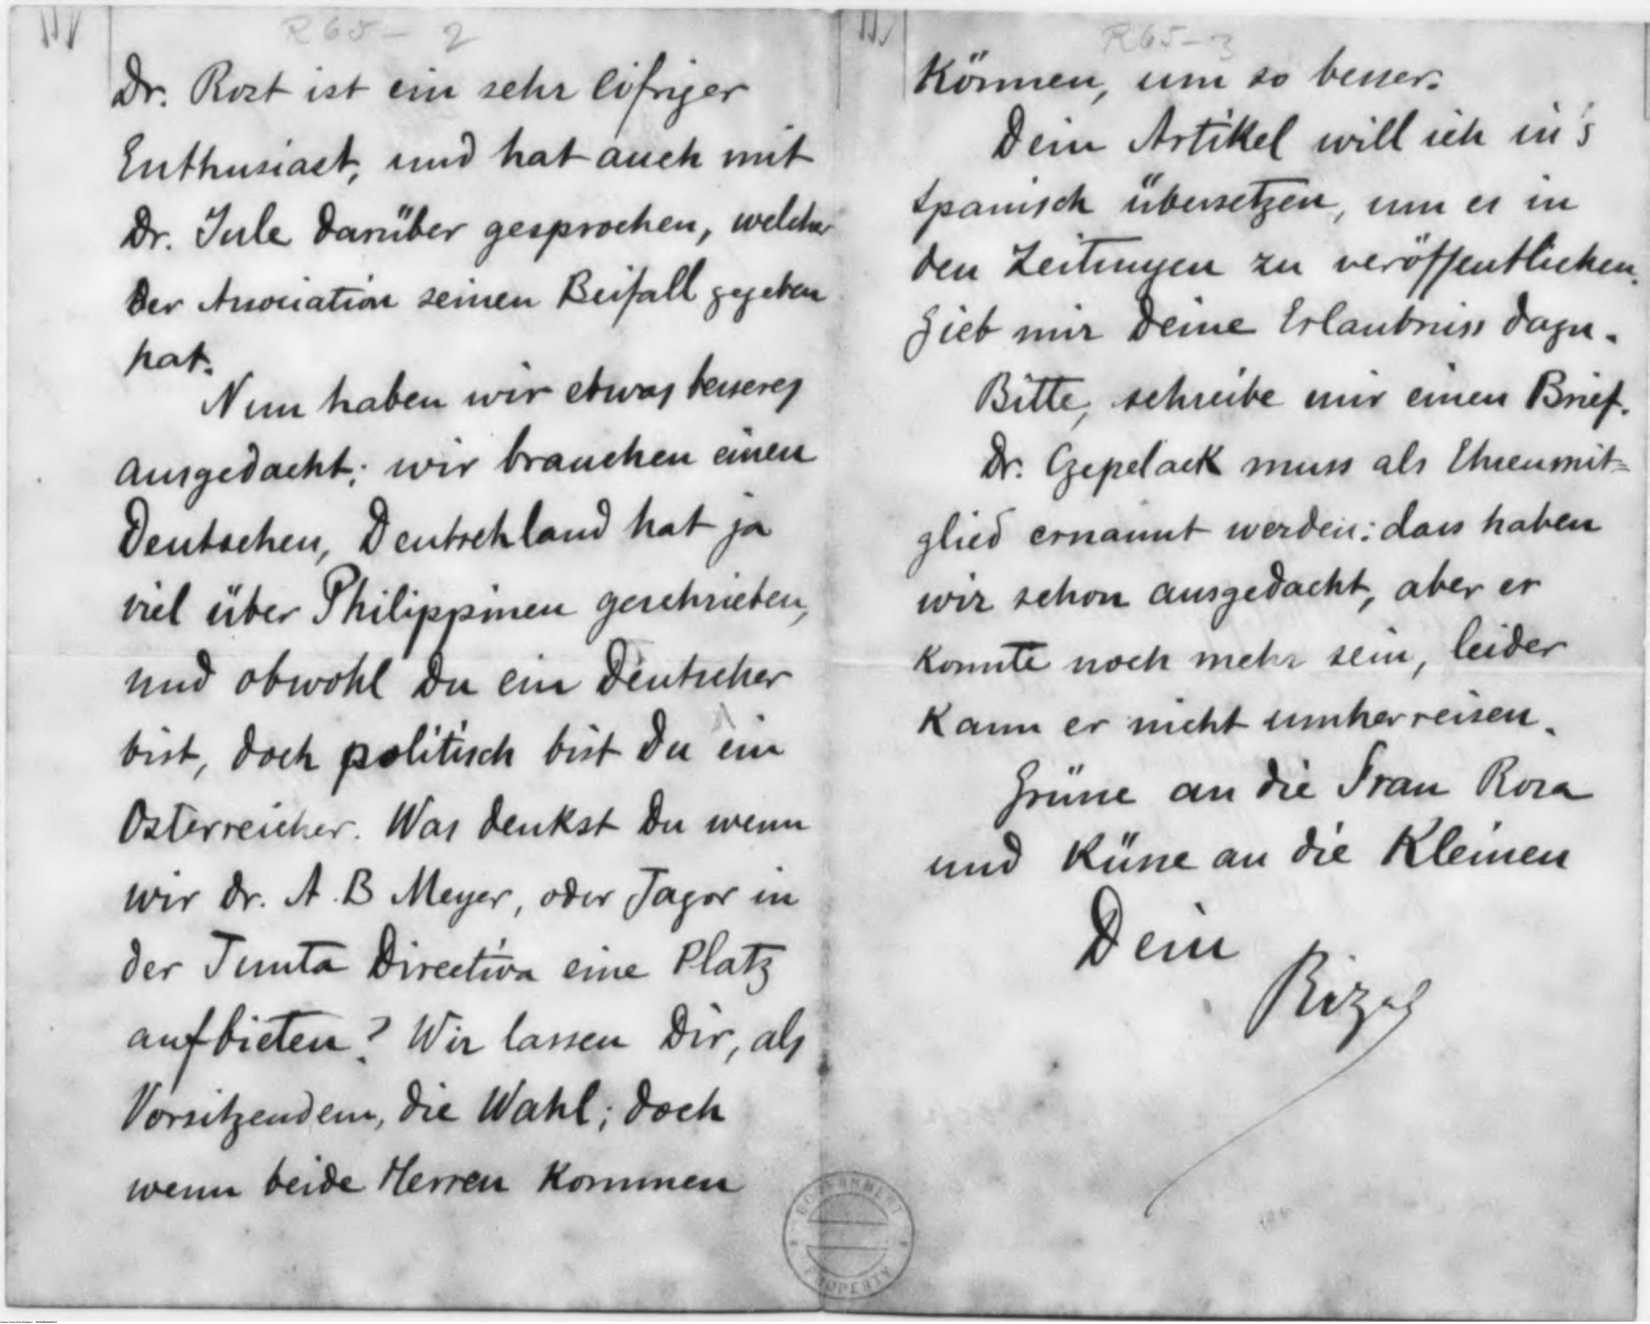 R65-2
Dr. Rost ist ein sehr eifriger
Enthusiast, und hat auch mit
Dr. Jule darüber gesprochen, welcher
der Association seinen Beifall gegeben
hat.
Nun haben wir etwas besseres
ausgedacht: wir brauchen einen
Deutschen, Deutschland hat ja
viel über Philippinen geschrieben,
und obwohl Du ein Deutscher
bist, doch politisch bist Du ein
Osterreicher. Was denkst Du wenn
wir Dr. A. B Meyer, oder Jagor in
der Junta Directiva eine Platz
aufbieten? Wir lassen Dir, als
Vorsitzendem, die Wahl; doch
wenn beide Herren kommen
R65-3
können, um so besser.
Dein Artikel will ich in's
Spanisch übersetzen, um es in
den Zeitungen zu veröffentlichen.
Gieb mir Deine Erlaubniss dazu.
Bitte, schreibe mir einen Brief.
Dr. Czepelack muss als Ehrenmit=
glied ernannt werden: dass haben
wir schon ausgedacht, aber er
konnte noch mehr sein, leider
kann er nicht umherreisen.
Grüsse an die Frau Rosa
und Küsse an die Kleinen
Dein
Rizal
GOVERNMENT
PROPERTY